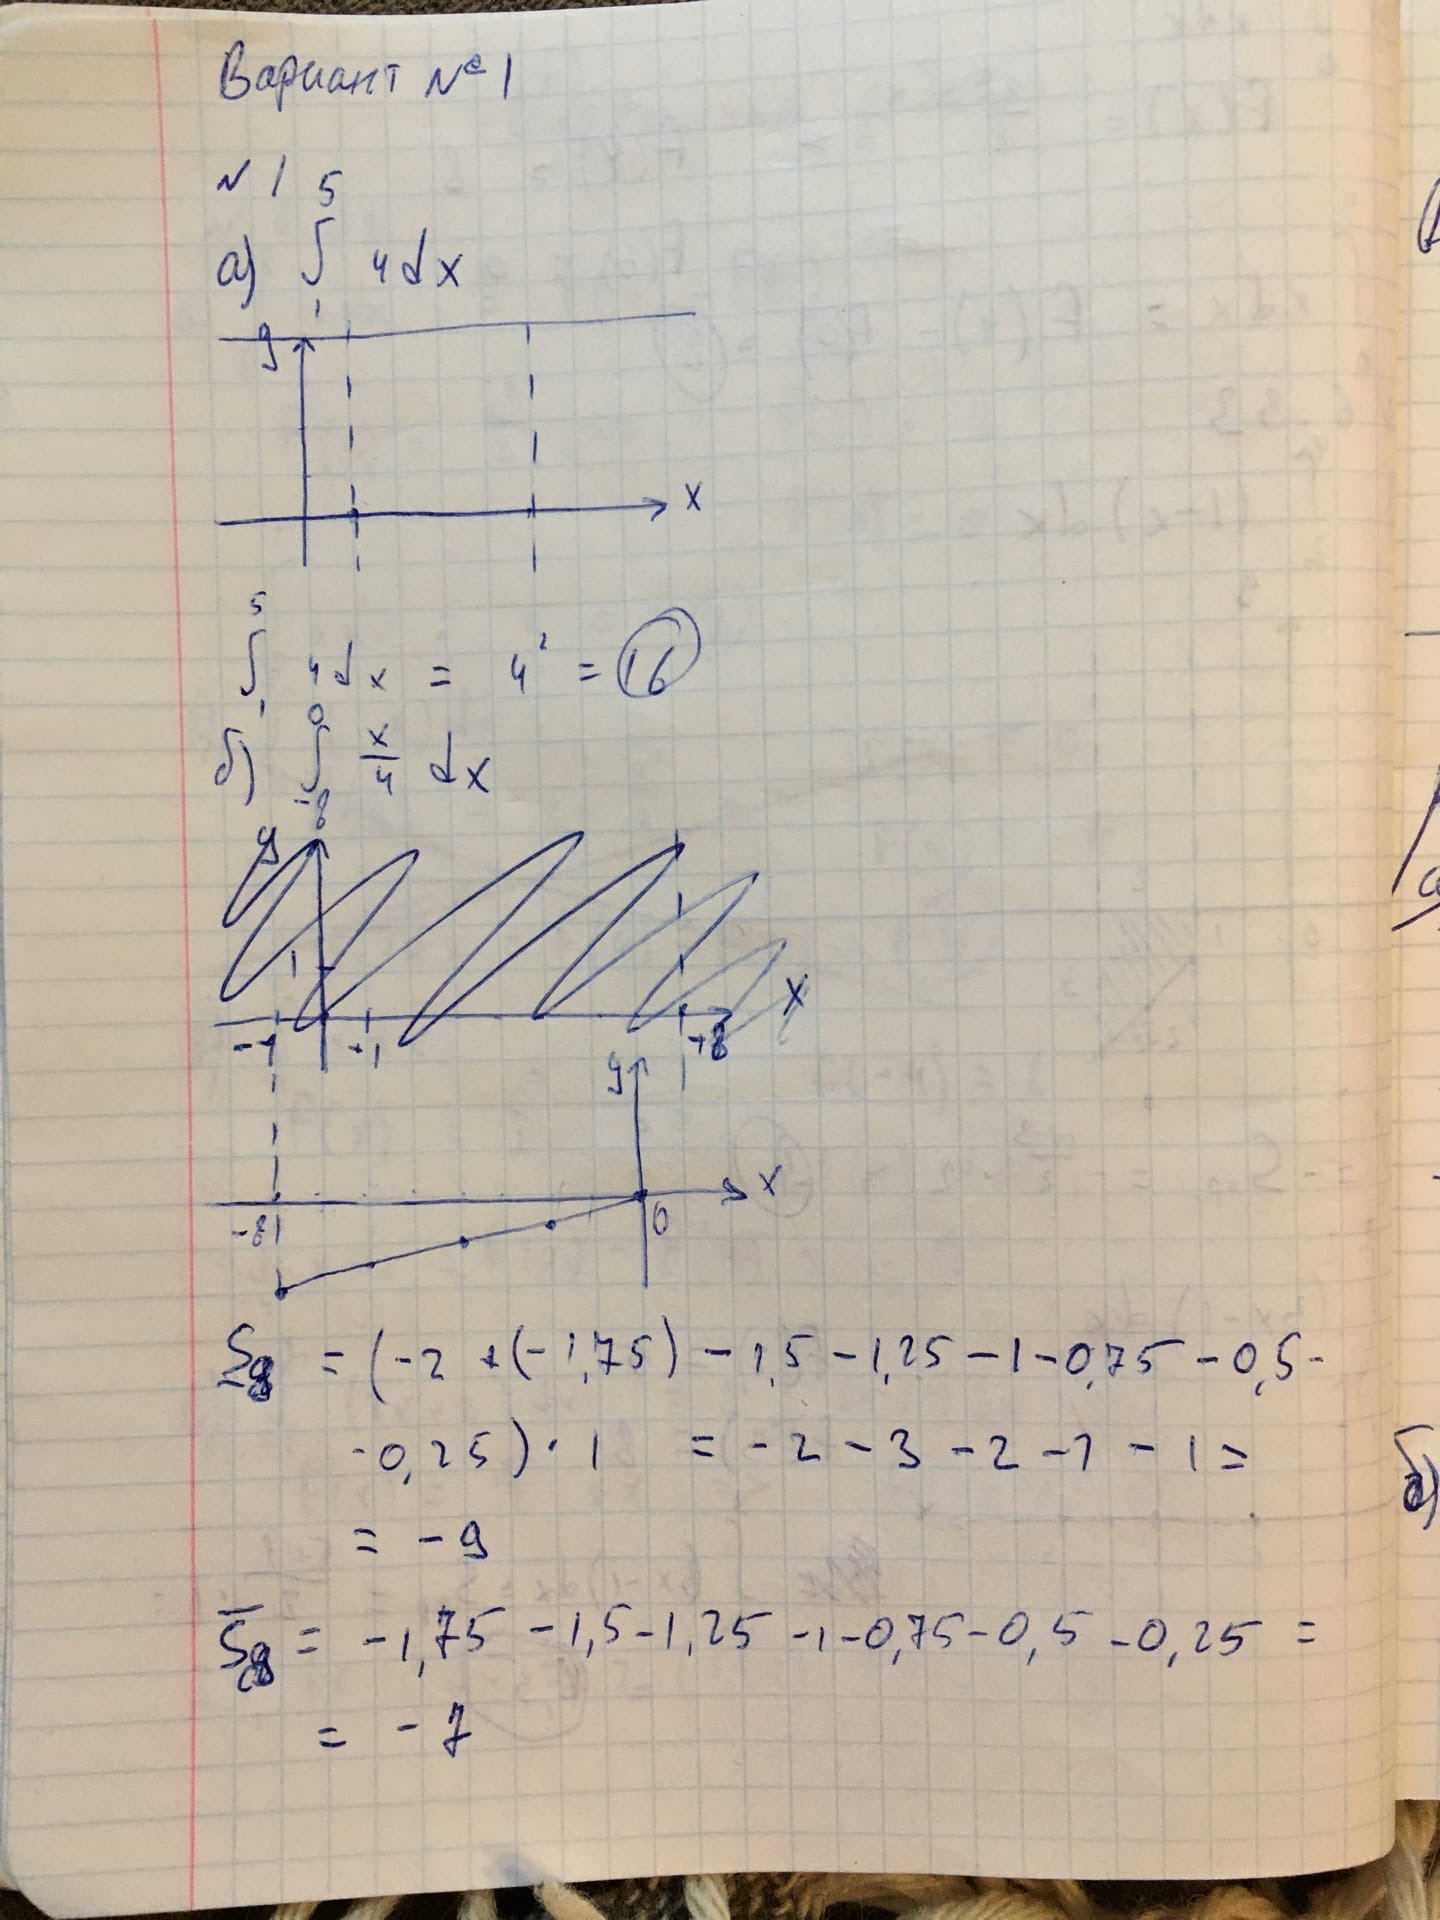 Вариант № 1
№ 1
а) ∫₁⁵ 4dx
y
x
∫₁⁵ 4dx = 4² = 16
б) ∫₋₈⁰ x/4 dx
y
1
x
-1 +1 +8
y
x
-8 0
S̲₈ = (-2 + (-1,75) - 1,5 - 1,25 - 1 - 0,75 - 0,5 -
- 0,25) · 1 = - 2 - 3 - 2 - 1 - 1 =
= - 9
S̅₈ = - 1,75 - 1,5 - 1,25 - 1 - 0,75 - 0,5 - 0,25 =
= - 7
б)